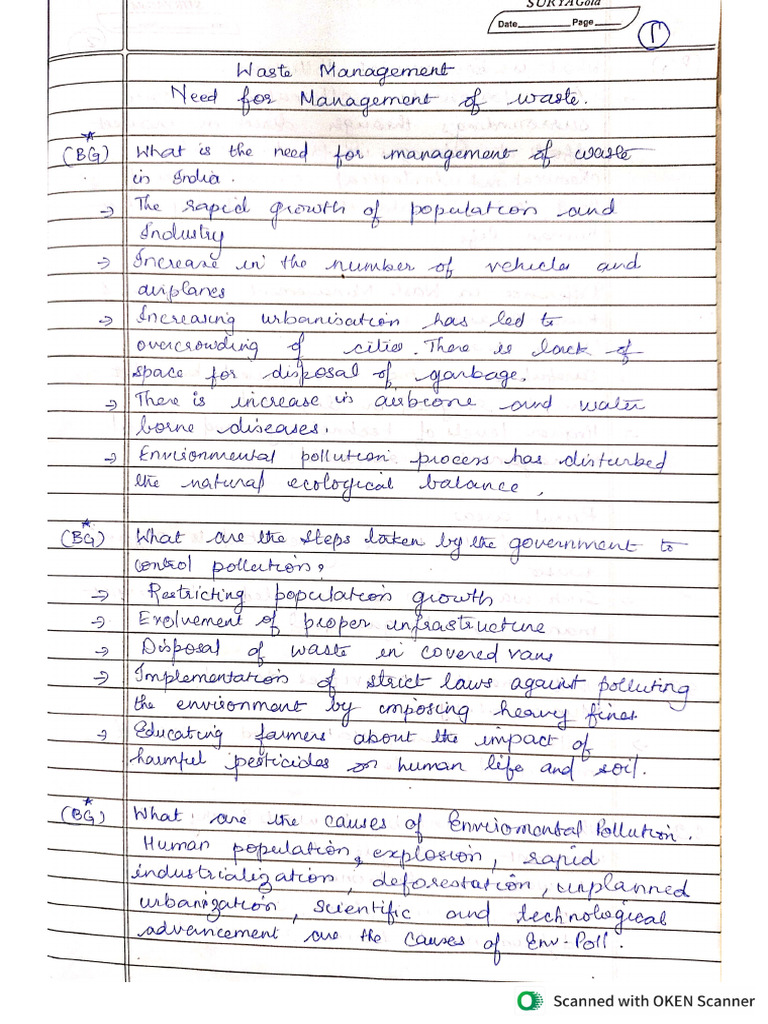 SURYA Gold
Date Page
1
Waste Management
Need for Management of waste.
(BG) What is the need for management of waste
in India.
→ The rapid growth of population and
Industry
→ Increase in the number of vehicles and
airplanes
→ Increasing urbanisation has led to
overcrowding of cities. There is lack of
space for disposal of garbage.
→ There is increase in airborne and water
borne diseases.
→ Environmental pollution process has disturbed
the natural ecological balance,
(BG) What are the steps taken by the government to
control pollution?
→ Restricting population growth
→ Evolvement of proper infrastructure
→ Disposal of waste in covered vans
→ Implementation of strict laws against polluting
the environment by imposing heavy fines
→ Educating farmers about the impact of
harmful pesticides on human life and soil.
(BG) What are the causes of Enviromental Pollution.
Human population, explosion, rapid
industrialization, deforestation, unplanned
urbanization, scientific and technological
advancement are the causes of Env-Poll.
Scanned with OKEN Scanner